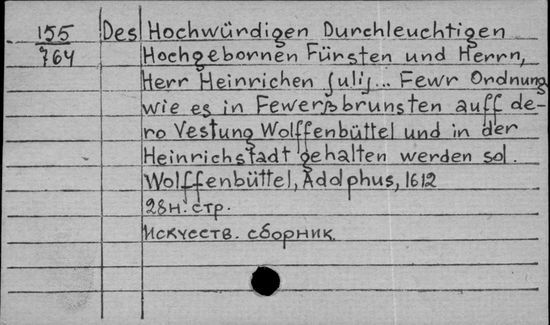 155 Des Hochwürdigen Durchleuchtigen
764 Hochgebornen Fürsten und Herrn,
Herr Heinrichen Julij... Fewr Ordnung
wie es in Fewerßbrunsten auff de-
ro Vestung Wolffenbüttel und in der
Heinrichstadt gehalten werden sol.
Wolffenbüttel, Adolphus, 1612
28 н. стр.
Искусств. сборник.